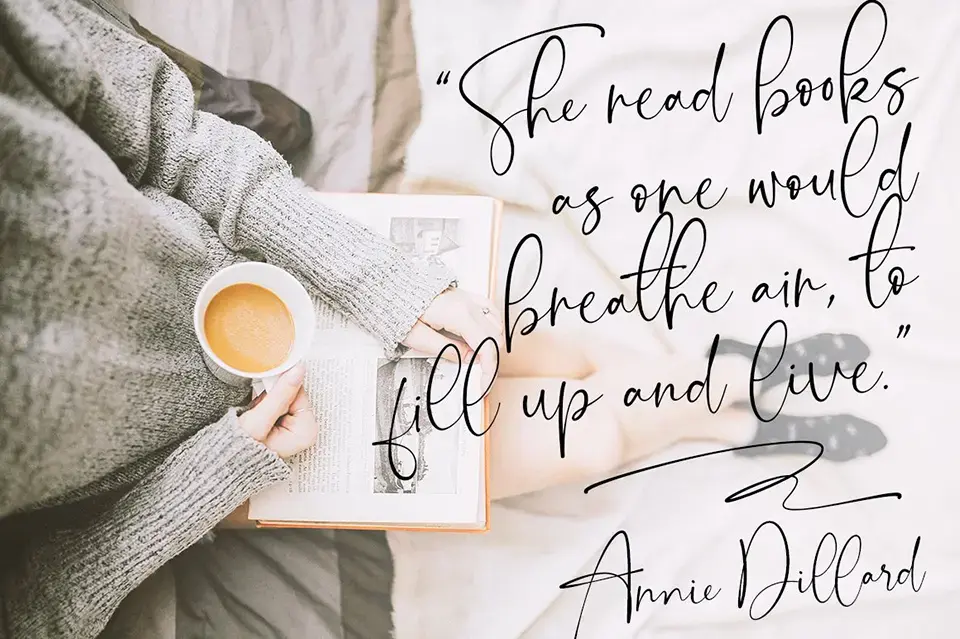 “She read books
as one would
breathe air, to
fill up and live.”
Annie Dillard